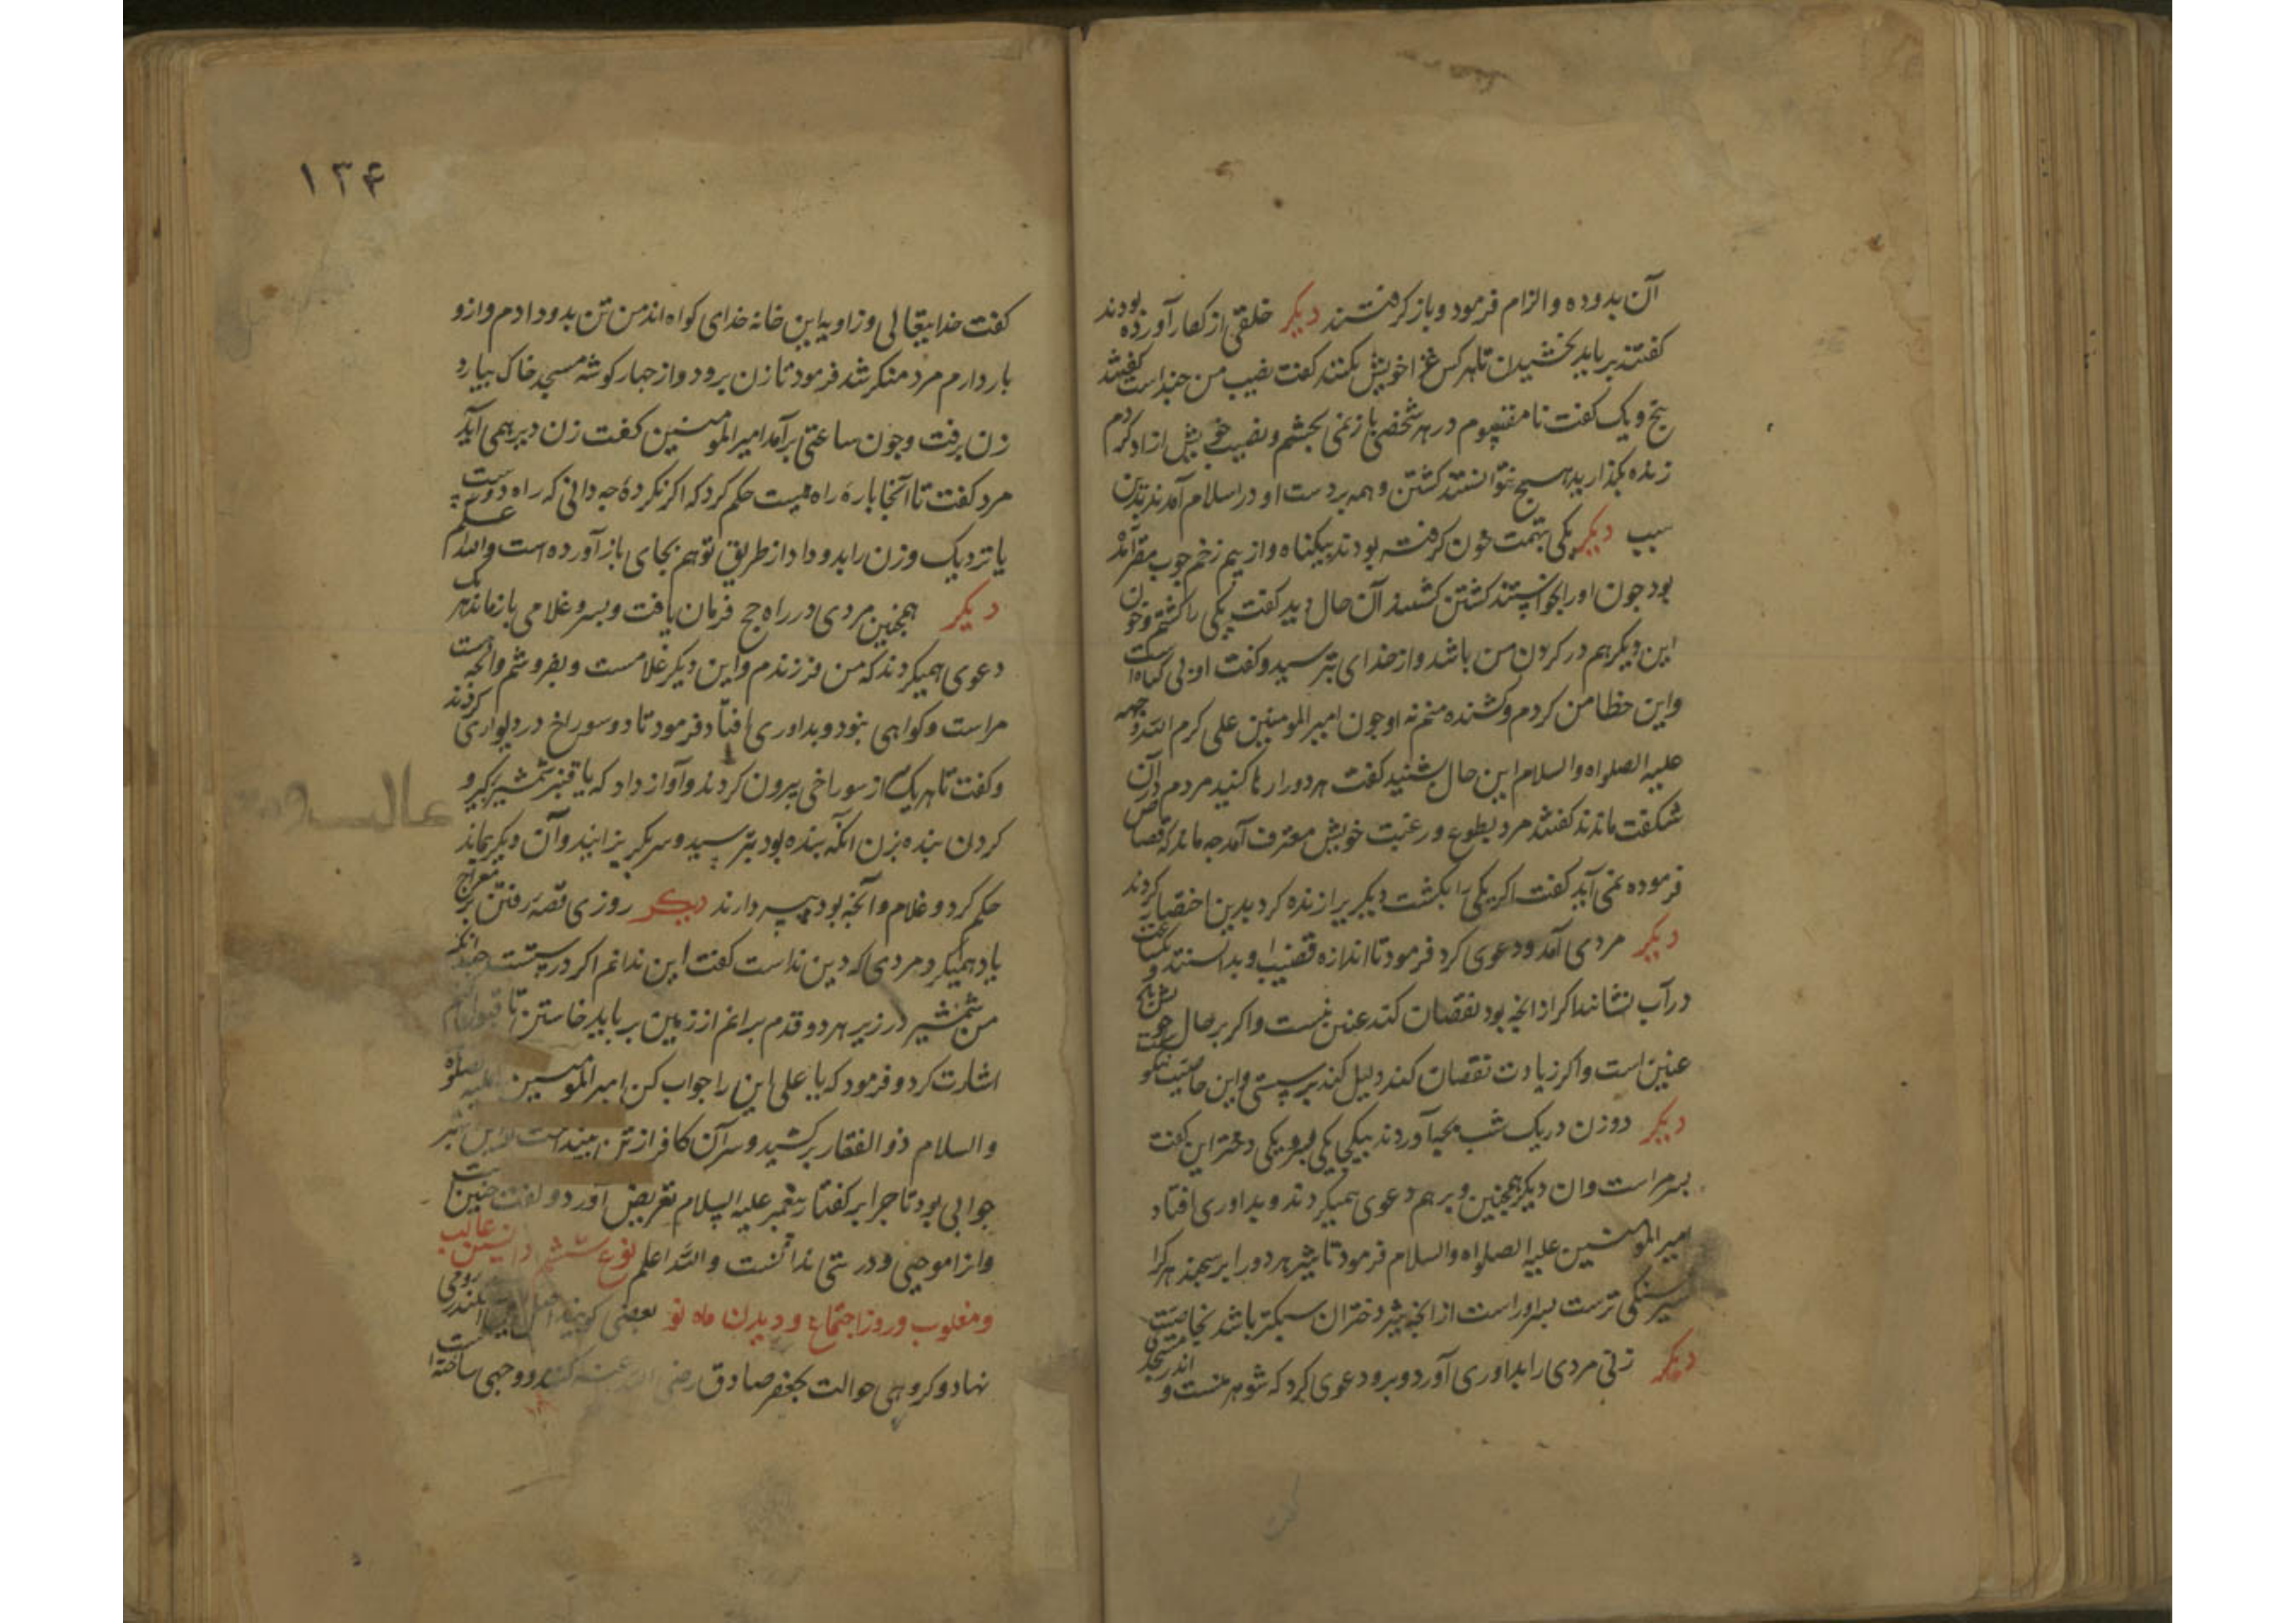 آن بدو ده و الزام فرمود و باز گرفتند دیکر خلقی از کفار آورده بودند
کفتند بر باید بخشیدن تا هر کس غزا خویش بکنند کفت نصیب من چندست کفتند
پنج و یک کفت نا مقسوم در هر شخصی بازنمی بخشم و نصیب خویش ازاد کردم
زنده بگذارید هیچ نتوانستند کشتن و همه بر دست او در اسلام آمدند بدین
سبب دیکر یکی بتهمت خون کرفته بودند بیکناه و از بیم زخم چوب مقر آمده
بود جون او را بخواستند کشتن کشنده آن حال دید کفت یکی را کشتم و خون
این دیکر هم در کردن من باشد و از خدای بترسید و کفت او بی کناه است
و این خطا من کردم و کشنده منم نه او جون امیر المومنین علی کرم الله وجهه
علیه الصلواه والسلام این حال بشنید کفت هر دو را رها کنید مردم در آن
شکفت ماندند کفتند مرد بطوع و رغبت خویش معترف آمد جه ماند که قصاص
فرموده نمی آید کفت اکر یکی را بکشت دیکر برا زنده کرد بدین اختصار کردند
دیکر مردی آمد و دعوی کرد فرمود تا اندازه قضیب او بدانستند و یکساعت
در آب نشاندند اکر از انجه بود نقصان کند عنین نیست و اکر بر حال خویش
عنین است و اکر زیادت نقصان کند دلیل کند بر سستی و این خاصیت نیکوست
دیکر دو زن در یک شب بجه آوردند یکی پسر و یکی دختر این کفت
پسر مراست و ان دیکر همچنین و بر هم دعوی همیکردند و بداوری افتاد
امیر المومنین علیه الصلواه والسلام فرمود تا شیر هر دو را بر سجند هر کرا
شیر سنکی ترست پسر او راست از انجه شیر دختران سبکتر باشد بخاصیت
دیکر زنی مردی را بداوری آورد و برو دعوی کرد که شوهر منست و اندر مسجدی
۱۳۴
کفت خدایتعالی و زاویه این خانه خدای کواه اند من تن بدو دادم و ازو
بار دارم مرد منکر شد فرمود تا زن برود و از جهار کوشه مسجد خاک بیارد
زن برفت و جون ساعتی برآمد امیر المومنین کفت زن دیر همی آید
مرد کفت تا آنجا پاره راه هست حکم کرد که اکر نکرده جه دانی که راه دورست
یا نزدیک و زن را بدو داد از طریق توهم بجای باز آورده است والله اعلم
دیکر همچنین مردی در راه حج فرمان یافت و پسر و غلامی باز ماند هر یک
دعوی همیکردند که من فرزندم و این دیکر غلامست و بفروشم و انجه هست
مراست و کواهی نبود و بداوری افتاد فرمود تا دو سوراخ در دیواری کردند
و کفت تا هر یک سر از سوراخی بیرون کردند و آواز داد که یا قنبر شمشیر بکیر و
کردن بنده بزن انکه بنده بود بترسید و سر بکریزانید و آن دیکر بماند
حکم کرد و غلام و انجه بود بپسر دارند دیکر روزی قصه رفتن بر معراج
یاد همیکرد مردی که دین نداست کفت این ندانم اکر درستست جندانکه
من شمشیر در زیر هر دو قدم برانم از زمین بر باید خاستن تا قبول کنم
اشارت کرد و فرمود که یا علی این را جواب کن امیر المومنین علیه الصلوه
والسلام ذو الفقار برکشید و سر آن کافر از تن بینداخت
جوابی بود تا جرا بر کفتار پیغمبر علیه السلام تعریض آورد و کفت جنین
و انرا موجبی و درستی ندانست والله اعلم نوع ششم دانستن غالب
و مغلوب و روز اجتماع و دیدن ماه نو بعضی کویند رومی
نهاد و کروهی حوالت بجعفر صادق رضی الله عنه کنند و وجهی ساخته